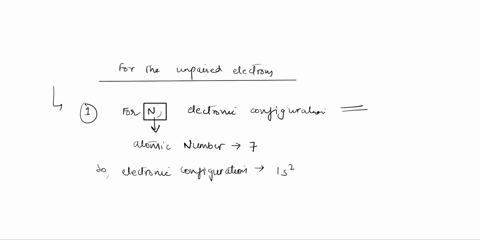 For the unpaired electrons
① For N, electronic configuration
atomic Number → 7
So, electronic configuration → 1s²